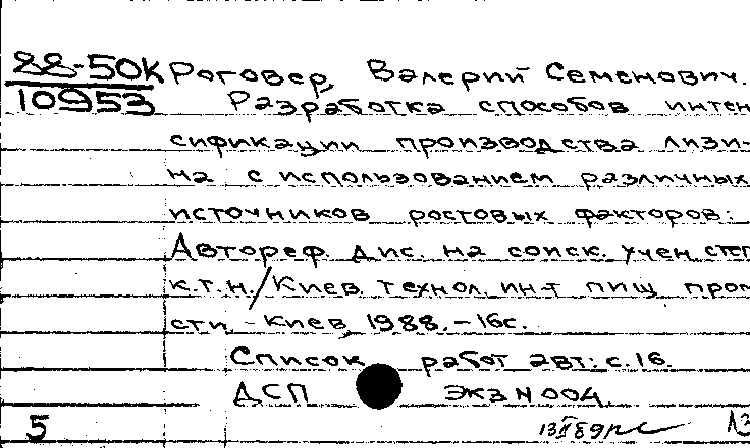 88-50К Роговер, Валерий Семенович.
10953 Разработка способов интен
сификации производства лизи-
на с использованием различных
источников ростовых факторов:
Автореф. дис. на соиск. учен. степ
к.т.н./Киев. технол. ин-т пищ. пром
сти. - Киев, 1988. - 16с.
Список работ авт.: с.16.
ДСП ЭКЗ N 004.
5